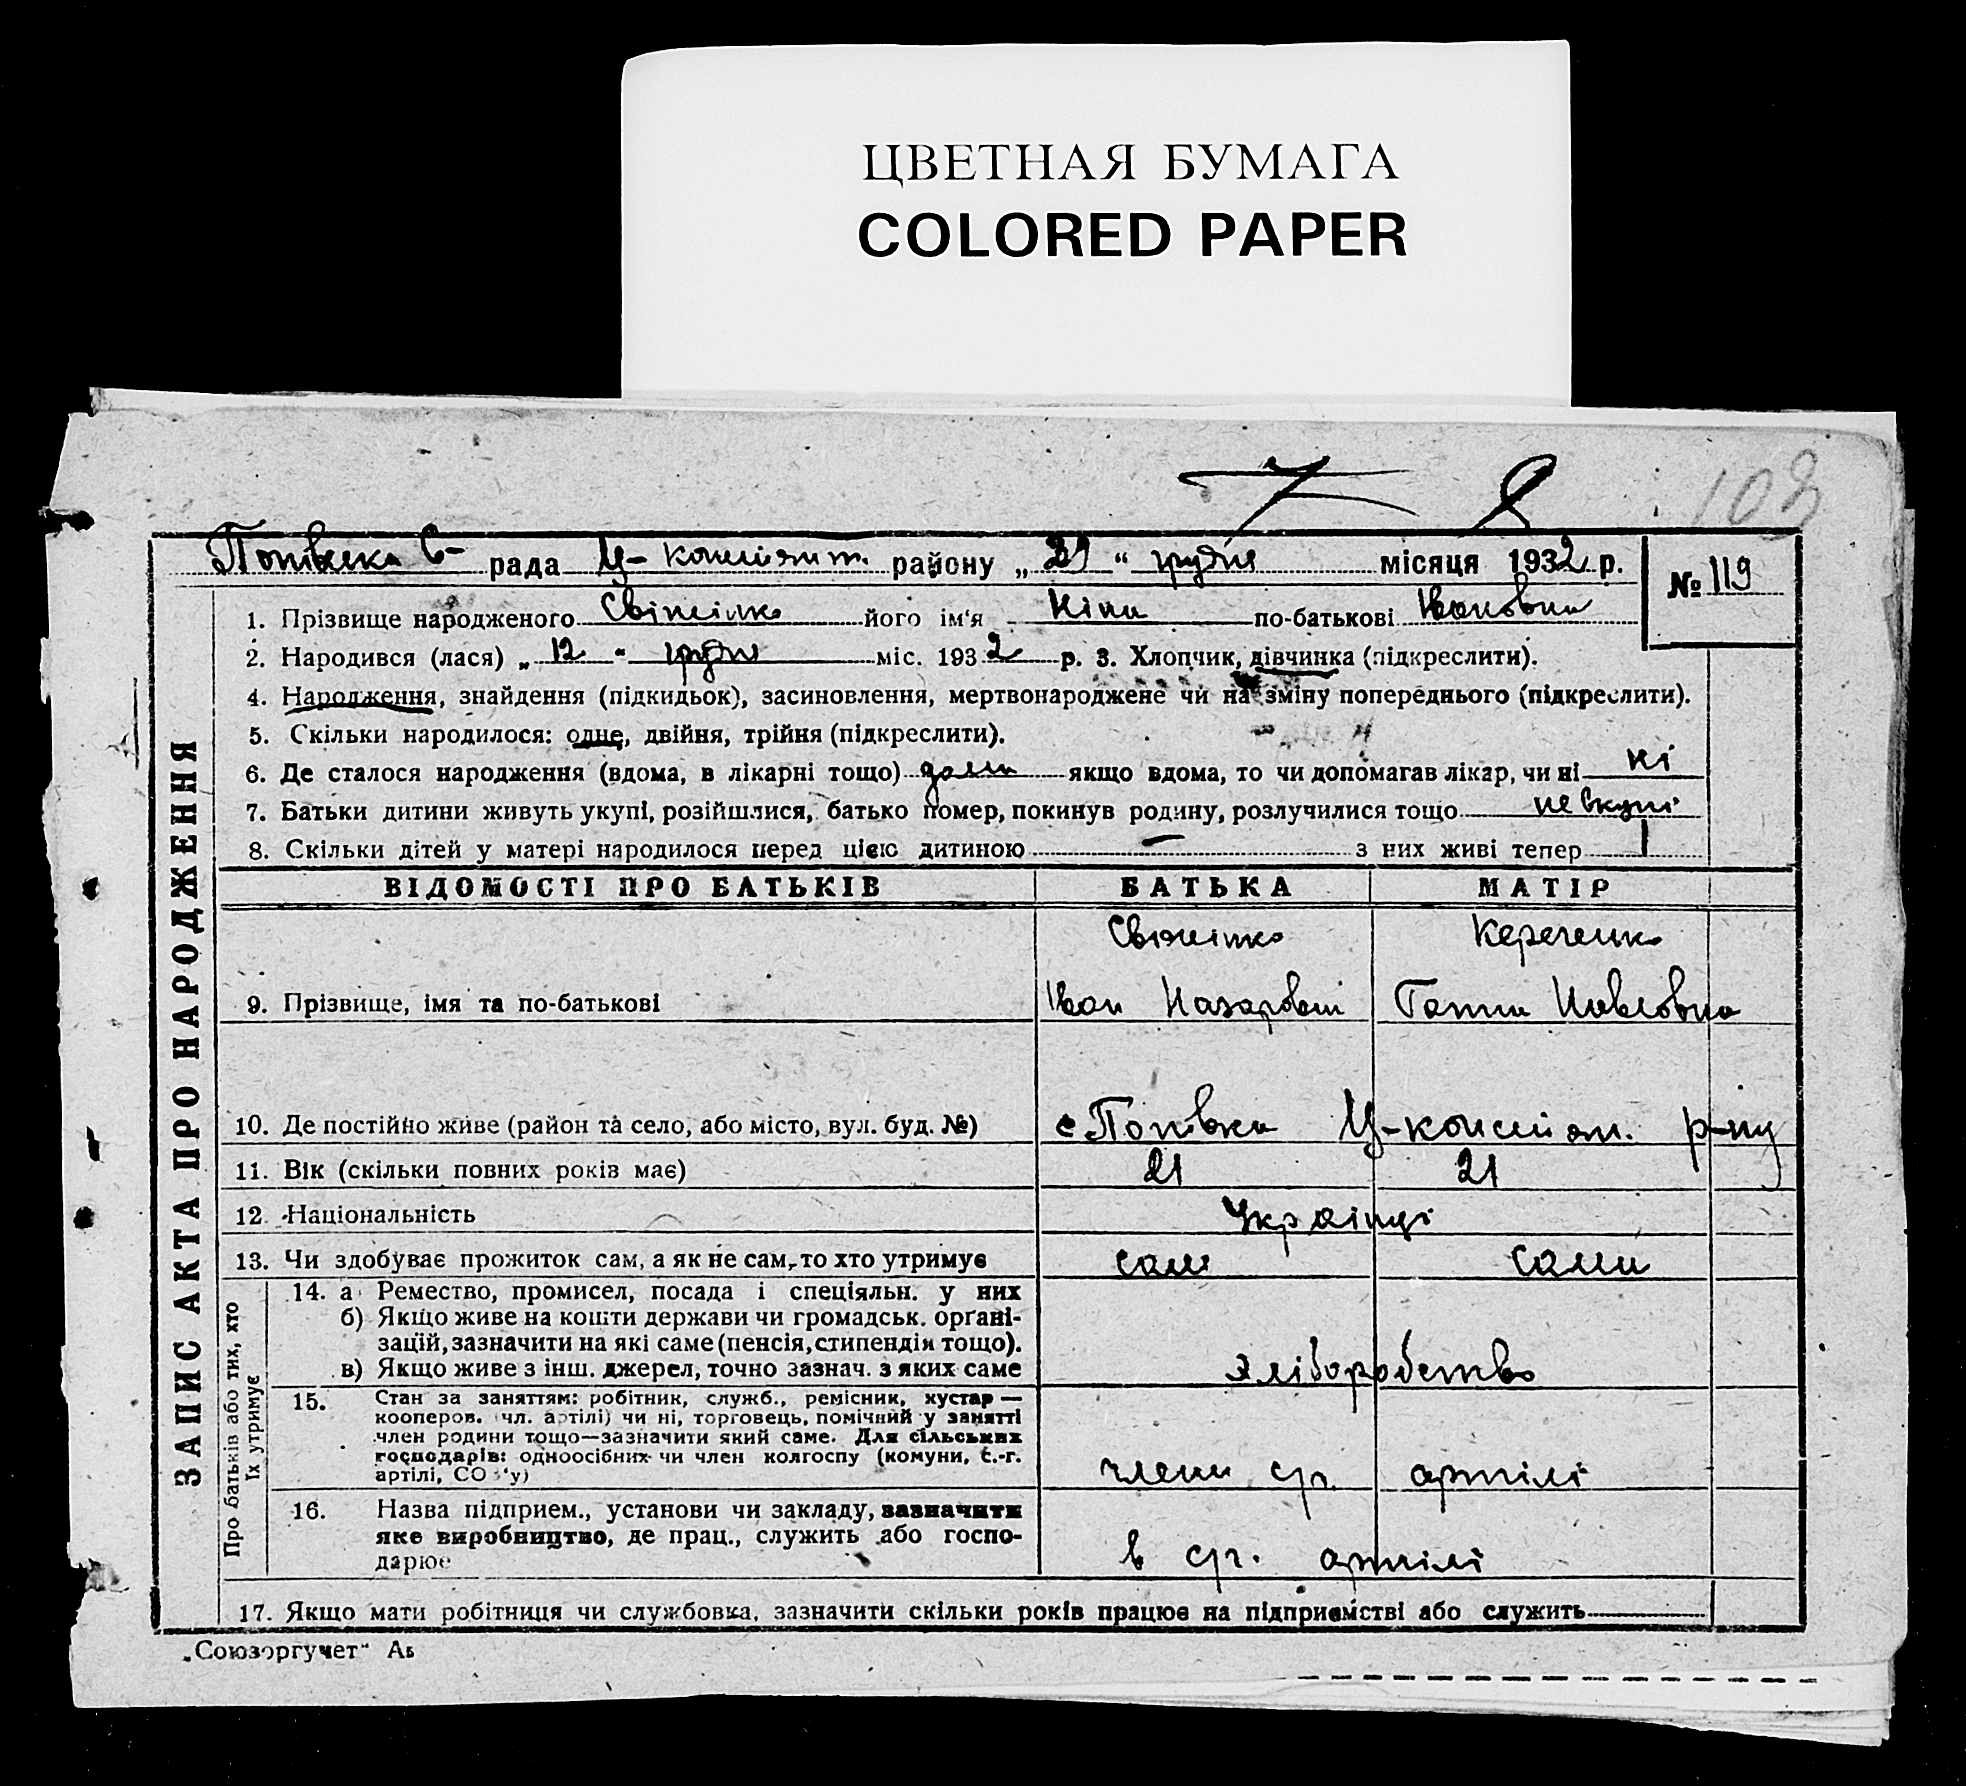 ЦВЕТНАЯ БУМАГА
COLORED PAPER
103
Попівська С- рада Ц- район у „29“ грудня місяця 1932 р.
№ 119
1. Прізвище народженого його ім'я Ніна по-батькові Івановна
2. Народився (лася) „12“ грудня міс. 1932 р. 3. Хлопчик, дівчинка (підкреслити).
4. Народження, знайдення (підкидьок), засиновлення, мертвонароджене чи на зміну попереднього (підкреслити).
5. Скільки народилося: одне, двійня, трійня (підкреслити).
6. Де сталося народження (вдома, в лікарні тощо) дома якщо вдома, то чи допомагав лікар, чи ні ні
7. Батьки дитини живуть укупі, розійшлися, батько помер, покинув родину, розлучилися тощо не вкупі
8. Скільки дітей у матері народилося перед цією дитиною — з них живі тепер 1
ЗАПИС АКТА ПРО НАРОДЖЕННЯ
ВІДОМОСТІ ПРО БАТЬКІВ БАТЬКА МАТІР
9. Прізвище, імя та по-батькові Іван Назарович Ганна Павловна
10. Де постійно живе (район та село, або місто, вул. буд. №) с Попівка р-ну
11. Вік (скільки повних років має) 21 21
12. Національність Українці
13. Чи здобуває прожиток сам, а як не сам, то хто утримує сам сами
Про батьків або тих, хто їх утримує
14. а Ремество, промисел, посада і спеціяльн. у них
б) Якщо живе на кошти держави чи громадськ. організацій, зазначити на які саме (пенсія, стипендія тощо).
в) Якщо живе з інш. джерел, точно зазнач. з яких саме хліборобство
15. Стан за заняттям: робітник, служб., ремісник, кустар —
кооперов. чл. артілі) чи ні, торговець, помічний у занятті
член родини тощо—зазначити який саме. Для сільських
господарів: одноосібних чи член колгоспу (комуни, с.-г.
артілі, СО у) члени с.г. артілі
16. Назва підприєм., установи чи закладу, зазначити
яке виробництво, де прац., служить або госпо-
дарює в с.г. артілі
17. Якщо мати робітниця чи службовка, зазначити скільки років працює на підприємстві або служить
„Союзоргучет“ Аь